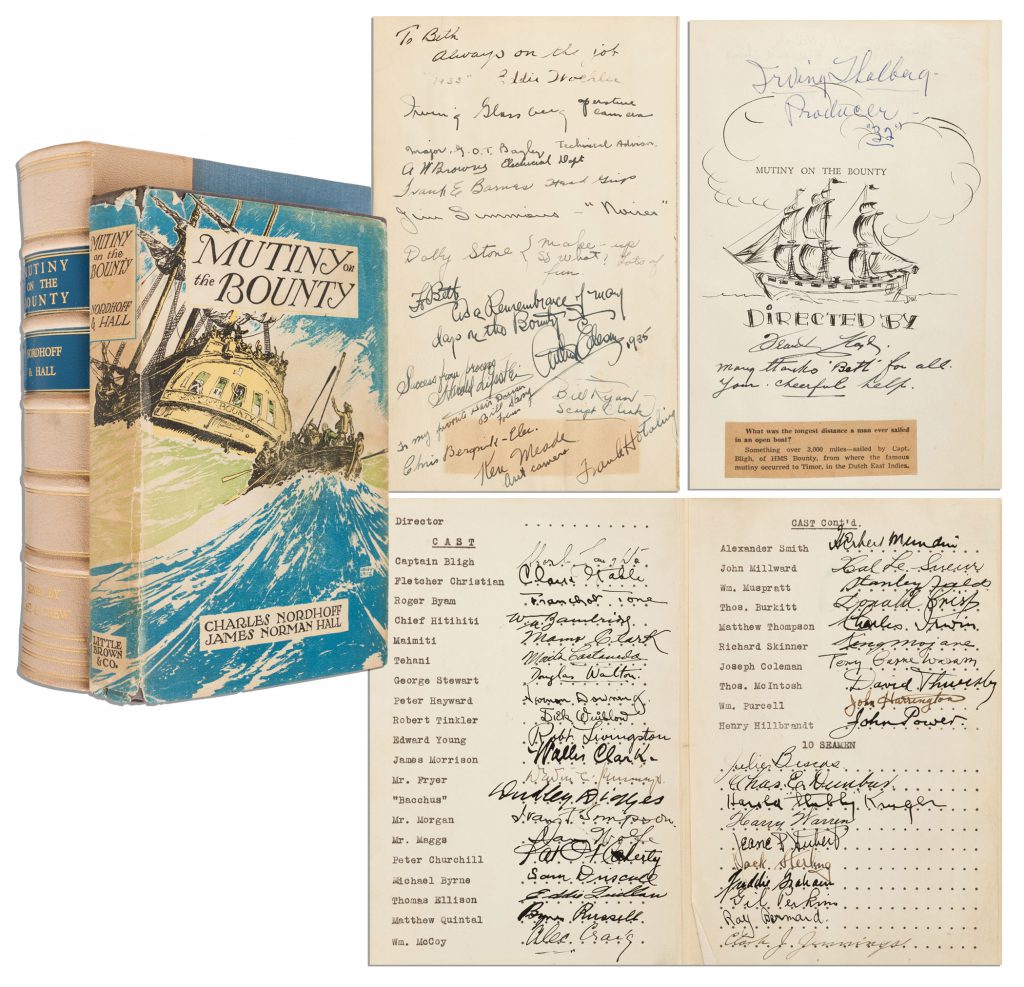 MUTINY
ON THE
BOUNTY
NORDHOFF
& HALL
MUTINY
on the
BOUNTY
NORDHOFF
& HALL
LITTLE
BROWN
& CO.
MUTINY on
the BOUNTY
CHARLES NORDHOFF
JAMES NORMAN HALL
To Beth
Always on the job
"1935" Eddie Woehler
Irving Glassberg operative camera
Major G.O.T. Bagley Technical Advisor
A W Browns Electrical Dept
Frank E Barnes Head Grip
Jim Simmons - "Noises"
Dolly Stone make-up
So What! Lots of fun
To Beth
as a Remembrance of many
days on the Bounty
1935
Success from
Harold
Bill Ryan
Script Clerk
to my favorite
Bill Lang
from
Chris Bergquist - Elec.
Ken Meade
asst camera
Frank Hotaling
Irving Thalberg -
Producer -
MUTINY ON THE BOUNTY
DIRECTED BY
Frank Lloyd
Many thanks "Beth" for all
your cheerful help.
What was the longest distance a man ever sailed
in an open boat?
Something over 3,000 miles—sailed by Capt.
Bligh, of HMS Bounty, from where the famous
mutiny occurred to Timor, in the Dutch East Indies.
Director
CAST
Captain Bligh Charles Laughton
Fletcher Christian Clark Gable
Roger Byam Franchot Tone
Chief Hitihiti Wm Bambridge
Maimiti Mamo Clark
Tehani Movita Castaneda
George Stewart Douglas Walton
Peter Hayward Vernon Downing
Robert Tinkler Dick Winslow
Edward Young Robt Livingston
James Morrison Wallis Clark
Mr. Fryer
"Bacchus" Dudley Digges
Mr. Morgan Ivan F. Simpson
Mr. Maggs Ian Wolfe
Peter Churchill Pat Flaherty
Michael Byrne Sam Driscoll
Thomas Ellison Eddie Quillan
Matthew Quintal Byron Russell
Wm. McCoy Alec Craig
CAST Cont'd.
Alexander Smith Herbert Mundin
John Millward Hal Le Sueur
Wm. Muspratt Stanley Fields
Thos. Burkitt Donald Crisp
Matthew Thompson Charles Irwin
Richard Skinner
Joseph Coleman
Thos. McIntosh David Thursby
Wm. Purcell John Harrington
Henry Hillbrandt John Power
10 SEAMEN
Chas E Dunbar
Harold "Stubby" Kruger
Harry Warren
Jack Sterling
Freddie Graham
Gil Perkins
Ray Bernard
Clark J. Jennings